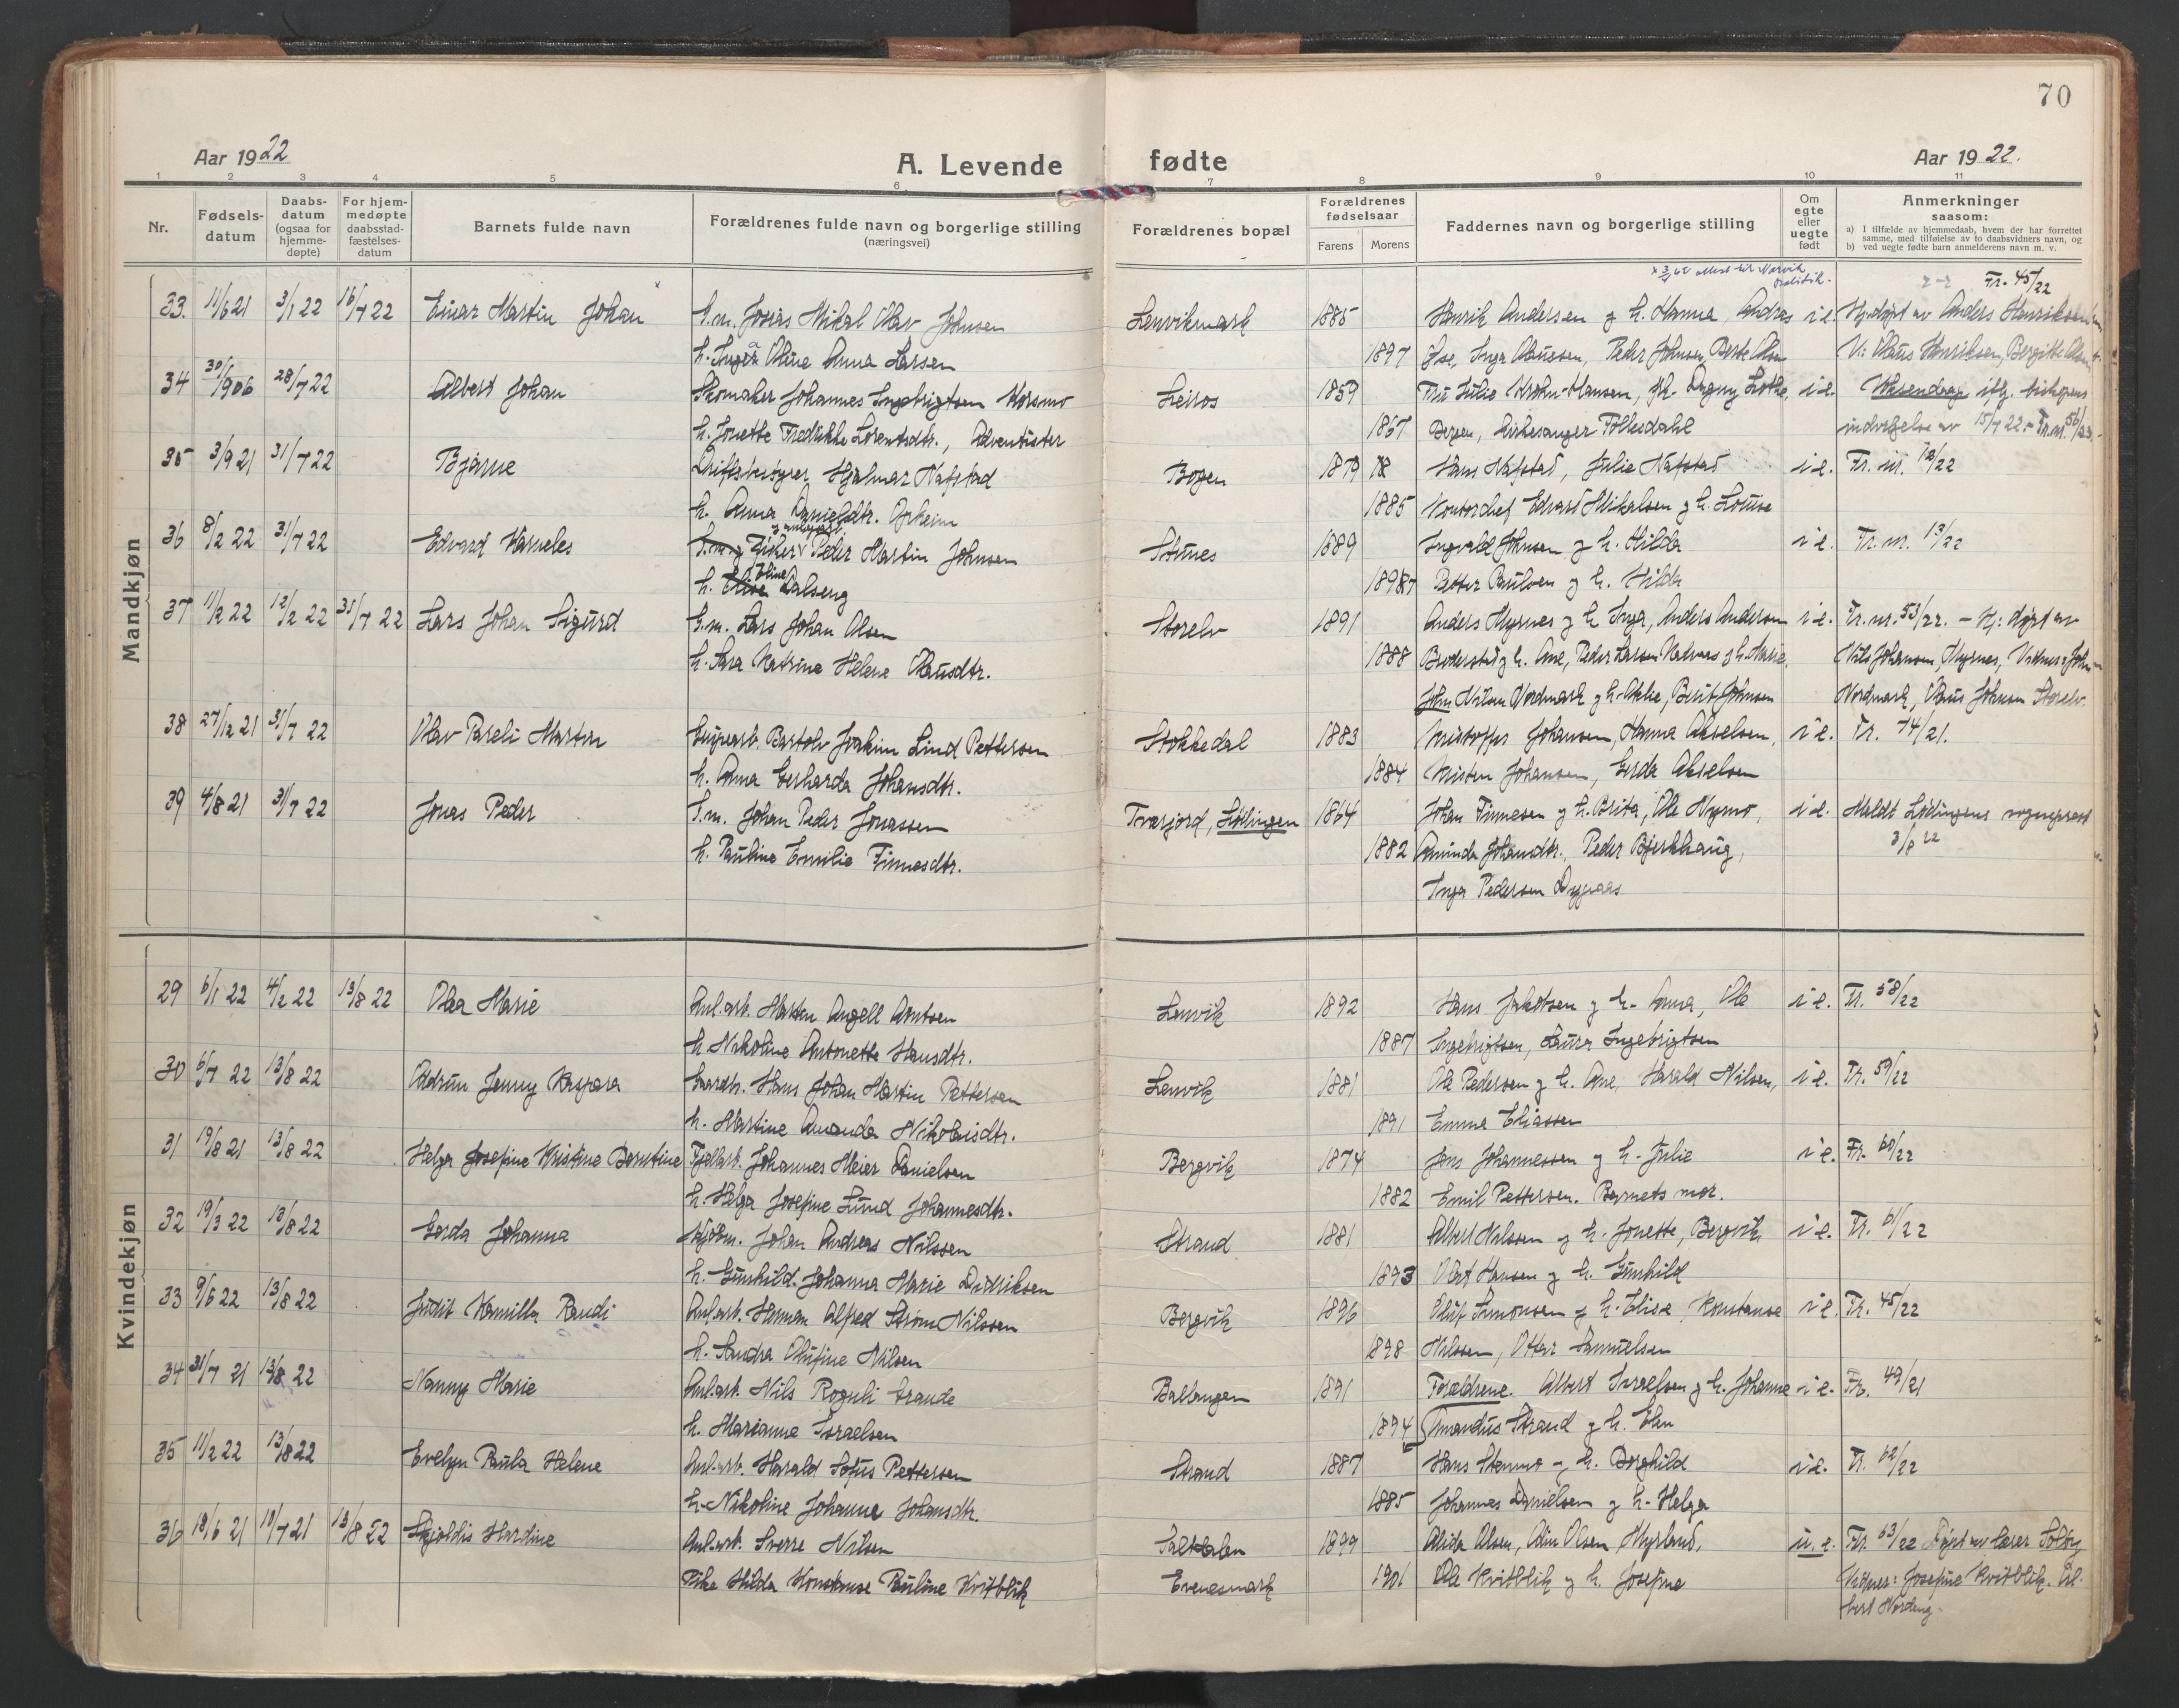 70
Aar 1922
A. Levende fødte
Aar 1922.
1 2 3 4 5 6 7 8 9 10 11
Nr.
Fødsels-datum
Daabs-datum (ogsaa for hjemme-døpte)
For hjem-medøpte daabsstad-fæstelses-datum
Barnets fulde navn
Forældrenes fulde navn og borgerlige stilling (næringsvei)
Forældrenes bopæl
Forældrenes fødselsaar
Farens
Morens
Faddernes navn og borgerlige stilling
Om egte eller uegte født
Anmerkninger saasom:
a) I tilfælde av hjemmedaab, hvem der har forrettet samme, med tilføielse av to daabsvidners navn, og
b) ved uegte fødte barn anmelderens navn m. v.
Mandkjøn
Fr. 45/22
33. 11/6 21 3/1 22 16/7 22 Einar Martin Johan G.m. Josias Mikal Olav Johnsen Lenvikmark 1885 Henrik Andersen g h. Hanna, Andreas i e. Hj.døpt av Anders Henriksen
h. Inga Oline Anna Larsen 1897 Inga Olaussen, Peder Johnsen, Berte Olsen V: Olaus Henriksen, Bergitte Olsen
34 30/1 906 28/7 22 Albert Johan Skomaker Johannes Ingebrigtsen Horsmo Leiros 1859 Fru Julie Krohn-Hansen, Frk. Dagny Lothe, i e. Voksendaap iflg. biskopens
h. Jonette Fredrikke Lorentsdtr., Adventister 1867 Bergen, kirkesanger Følkesdahl indvigelse av 15/7 22. - Fr.nr. 56/23.
35 3/9 21 31/7 22 Bjarne Driftsbestyrer Hjalmar Nafstad Bogen 1879 Hans Nafstad, Julie Nafstad i e. Fr. nr. 12/22
h. Anna Danieldtr. Opheim 1885 Kontorchef Edvard Mikalsen g h. Lovise
36 8/2 22 31/7 22 Edvard Varneles Fisker Peder Martin Johnsen Stunes 1889 Ingvald Johnsen g h. Hilda i e. Fr. nr. 13/22
h. Eline Dalseng 1897 Petter Paulsen g h. Hilda
37 11/2 22 12/2 22 31/7 22 Lars Johan Sigurd G.m. Lars Johan Olsen Storelv 1891 Anders Myrnes g h Inga, Anders Andersen i e. Fr. nr. 53/22. - Hj: døpt av
h. Sara Katrine Helene Olausdtr. 1888 Broderstad g h. Ane, Peder Larsen g h. Marie, Nils Johansen, Myrnes, Vidner: John
John Nilsen Nordmark g h. Oklie, Berit Johnsen Nordmark, Olaus Johnsen Storelv.
38 27/12 21 31/7 22 Olav Pareli Martin Grubearb. Bartolv Joakim Lind Pettersen Stokkedal 1883 Kristoffer Johansen, Hanna Akselsen, i e. Fr. 74/21.
h. Anna Gerharda Johansdtr. 1884 Kristen Johansen, Gerda Akselsen
39 4/8 21 31/7 22 Jonas Peder G.m. Johan Peder Jonassen Tverfjord, Lødingen 1864 Johan Finnesen g h. Berita, Ole Nygmo, i e. Meldt Lødingens sogneprest
h. Pauline Emilie Finnesdtr. 1882 Aminda Johansdtr. Peder Bjerkhaug, 3/8 22
Inga Pedersen Dyggaas
Kvindekjøn
29 6/1 22 4/2 22 13/8 22 Olea Marie Anl.arb. Morten Angell Arntsen Lenvik 1892 Hans Jakobsen g h. Anna, Ole i e. Fr. 58/22
h. Nikoline Antonette Hansdtr. 1887 Ingebrigtsen, Laura Ingebrigtsen
30 6/7 22 13/8 22 Oddrun Jenny Kaspara Gaardbr. Hans Johan Martin Pettersen Lenvik 1881 Ole Pedersen g h. Ane, Harald Nilsen, i e. Fr. 59/22
h. Martine Amanda Nikolaisdtr. 1891 Emma Eliassen
31 19/8 21 13/8 22 Helga Josefine Kristine Berntine Fjellarb. Johannes Meier Danielsen Bergvik 1874 Jens Johannessen g h. Julie i e. Fr. 60/22
h. Helga Josefine Lund Johannesdtr. 1882 Emil Pettersen. Barnets mor.
32 19/3 22 13/8 22 Gerda Johanna Kjøbm. Johan Andreas Nilssen Strand 1881 Albert Nilssen g h. Jonette, Bergvik, i e. Fr. 61/22
h. Gunhild Johanna Marie Didriksen 1893 Olert Hansen g h. Gunhild
33 9/6 22 13/8 22 Judit Kamilla Randi Anl.arb. Herman Alfred Strøm Nilssen Bergvik 1896 Oluf Simonsen g h. Elise, Konstanse i e. Fr. 45/22
h. Sandra Olufine Nilsen 1898 Nilssen, Ottar Samuelsen
34 31/7 21 13/8 22 Nanny Marie Anl.arb. Nils Roguli Strande Ballangen 1891 Forældrene. Albert Israelsen g h. Johanne i e. Fr. 49/21
h. Marianne Israelsen 1894 Amandus Strand g h. Elen
35 11/2 22 13/8 22 Evelyn Paula Helene Anl.arb. Harald Sofus Pettersen Strand 1887 Hans Stenmo g h. Borghild i e. Fr. 62/22
h. Nikoline Johanne Johansdtr. 1885 Johannes Danielsen g h. Helga
36 18/6 21 19/7 21 13/8 22 Skjoldis Hardine Anl.arb. Sverre Nilsen Saltdalen 1899 Alida Olsen, Edin Olsen Myrland, u. e. Fr. 63/22 Døpt av lærer Solberg
Pike Hilda Konstanse Pauline Kvitblik Evenesmark 1901 Ole Kvitblik g h. Josefine Vidner: Josefine Kvitblik. Al-
bert Nordeng.